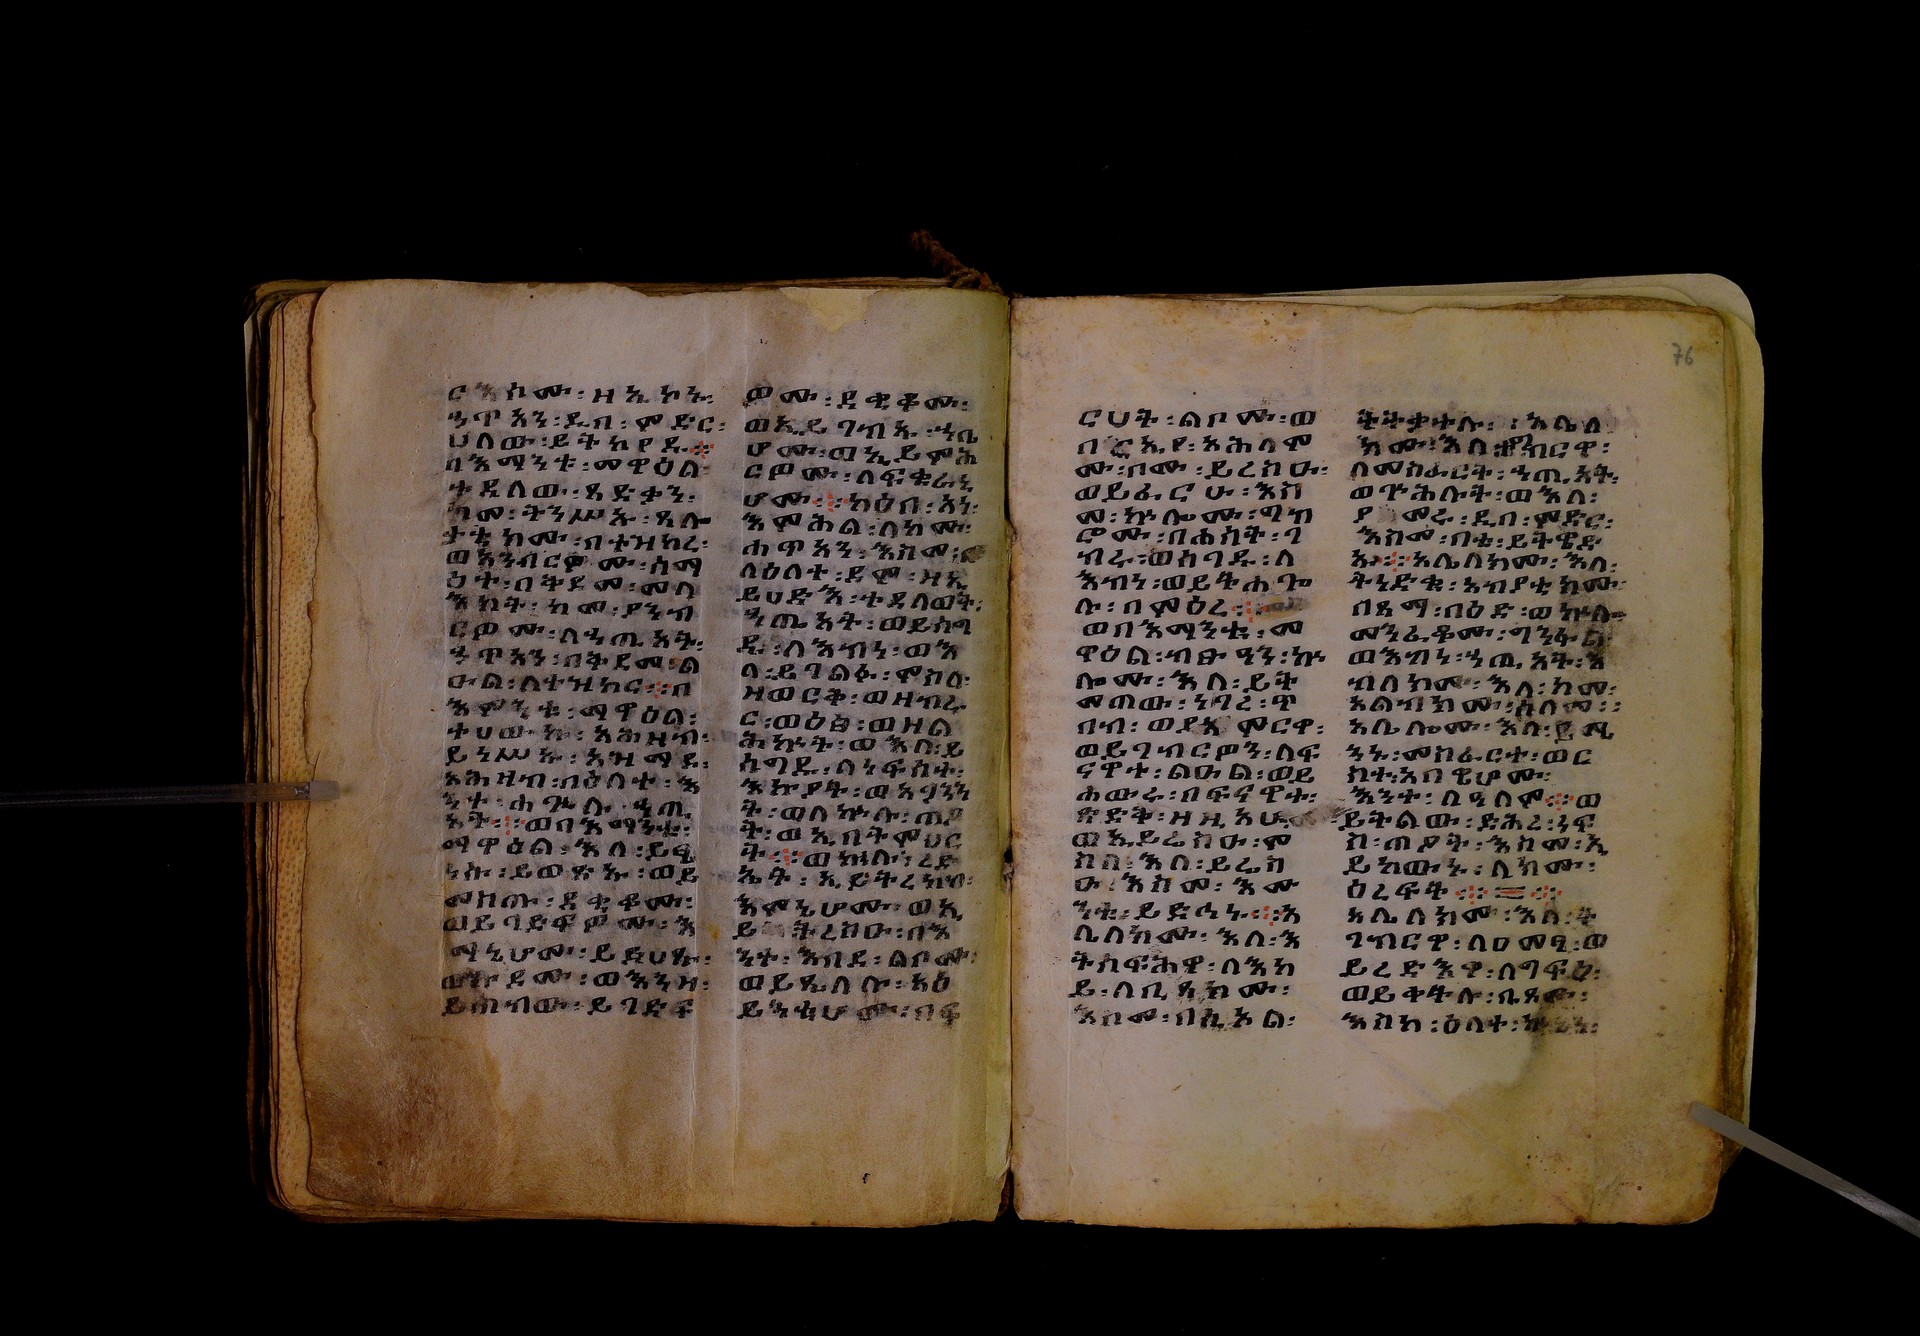 ርእሶሙ፡ ዘኢኮኑ፡
ኃጥአን፡ ዲበ፡ ምድር፡
ሀለው፡ ይትከየዱ፨
በእማንቱ፡ መዋዕል፡
ተደለው፡ ጻድቃን፡
ከመ፡ ትንሥኡ፡ ጸሎ
ታቲክሙ፡ በተዝከረ፡
ወአንብርዎሙ፡ ስማ
ዕት፡ በቅደመ፡ መላ
እክት፡ ከመ፡ ያንብ
ርዎሙ፡ ለኃጢአት፡
ኃጥአን፡ በቅደመ፡ ል
ዑል፡ ለተዝካር፨ በ
እማንቱ፡ ማዋዕል፡
ተሀውኩ፡ አሕዛብ፡
ይነሥኡ፡ አዝማደ፡
አሕዛብ፡ በዕለተ፡ እ
ንተ፡ ሐጕሉ፡ ኃጢ
አት፨ ወበእማንቱ፡
ማዋዕል፡ እለ፡ ይፄ
ነሱ፡ ይወጽኡ፡ ወይ
መስጡ፡ ደቂቆሙ፡
ወይገድፍዎሙ፡ እ
ማኔሆሙ፡ ይድህፁ፡
ውሉደሙ፡ ወእንዘ፡
ይጠብው፡ ይገድፍ
ዎሙ፡ ደቂቆሙ፡
ወኢይገብኡ፡ ኀቤ
ሆሙ፡ ወኢይምሕ
ርዎሙ፡ ለፍቁራኒ
ሆሙ፨ ካዕበ፡ አነ፡
እምሕል፡ ለክሙ፡
ኃጥአን፡ እስመ፡
ለዕለተ፡ ደም፡ ዘኢ
ይሀድእ፡ ተደለወት፡
ኃጢአት፡ ወይሰግ
ዱ፡ ለእብነ፡ ወእ
ለ፡ ይገልፉ፡ ምስለ፡
ዘወርቅ፡ ወዘብሩ
ር፡ ወዕፅ፡ ወዘል
ሕኵት፡ ወእለ፡ ይ
ሰግዱ፡ ለነፍሳተ፡
እኩያት፡ ወአጋንን
ት፡ ወለኵሉ፡ ጣዖ
ት፡ ወኢበትምህር
ት፨ ወኵሉ፡ ረድ
ኤት፡ ኢይትረከብ፡
እምኔሆሙ፡ ወኢ
ይትረሰዉ፡ በእ
ንተ፡ እበደ፡ ልቦሙ፡
ወይጼለሉ፡ አዕ
ይንቲሆሙ፡ በፍ
ርሀት፡ ልቦሙ፡ ወ
በርኢየ፡ አሕላም
ሙ፡ ቦሙ፡ ይረስዑ፡
ወይፈርሁ፡ እስ
መ፡ ኵሎሙ፡ ግብ
ሮሙ፡ በሐሰት፡ ገ
ብሩ፡ ወሰገዱ፡ ለ
እብነ፡ ወይትሐጐ
ሉ፡ በምዕረ፨
ወበእማንቱ፡ መ
ዋዕል፡ ብፁዓን፡ ኵ
ሎሙ፡ እለ፡ ይት
መጠው፡ ነገረ፡ ጥ
በብ፡ ወያአምርዋ፡
ወይገብርዎን፡ ለፍ
ናዋተ፡ ልዑል፡ ወይ
ሐውሩ፡ በፍናዋተ፡
ጽድቅ፡ ዘዚአሁ፡
ወኢይረስዑ፡ ም
ስለ፡ እለ፡ ይረስ
ዑ፡ እስመ፡ እሙ
ንቱ፡ ይድኅኑ፨ አ
ሌለክሙ፡ እለ፡ እ
ትሰፍሕዋ፡ ለእክ
ይ፡ ለቢጸክሙ፡
እስመ፡ በሲኦል፡
ትትቃተሉ፡ አሌለ
ክሙ፡ እለ፡ ትገብርዋ፡
ለመስፈርት፡ ኃጢአት፡
ወጕሕሉት፡ ወእለ፡
ያመሩ፡ ዲበ፡ ምድር፡
እስመ፡ ቦቱ፡ ይትዌድ
ኡ፨ አሌለክሙ፡ እለ፡
ትነድቁ፡ አብያቲክሙ፡
በጻማ፡ በዕድ፡ ወኵሉ፡
መንፈቆሙ፡ ግንፋል፡
ወእብነ፡ ኃጢአት፡ እ
ብለክሙ፡ እለ፡ ከመ፡
አልብክሙ፡ ሰላመ፡
አሌሎሙ፡ እለ፡ ይሜ
ንኑ፡ መስፈርተ፡ ወር
ስተ፡ አበዊሆሙ፡
እንተ፡ ለዓለም፨ ወ
ይትልው፡ ድሕረ፡ ነፍ
ሰ፡ ጣዖት፡ እስመ፡ ኢ
ይከውኑ፡ ለክሙ፡
ዕረፍት፨ ፨
አሌለክሙ፡ እለ፡ ት
ገብርዋ፡ ለዐመፃ፡ ወ
ይረድእዋ፡ ለግፍዕ፡
ወይቀትሉ፡ ቢጾሙ፡
እስከ፡ ዕለተ፡